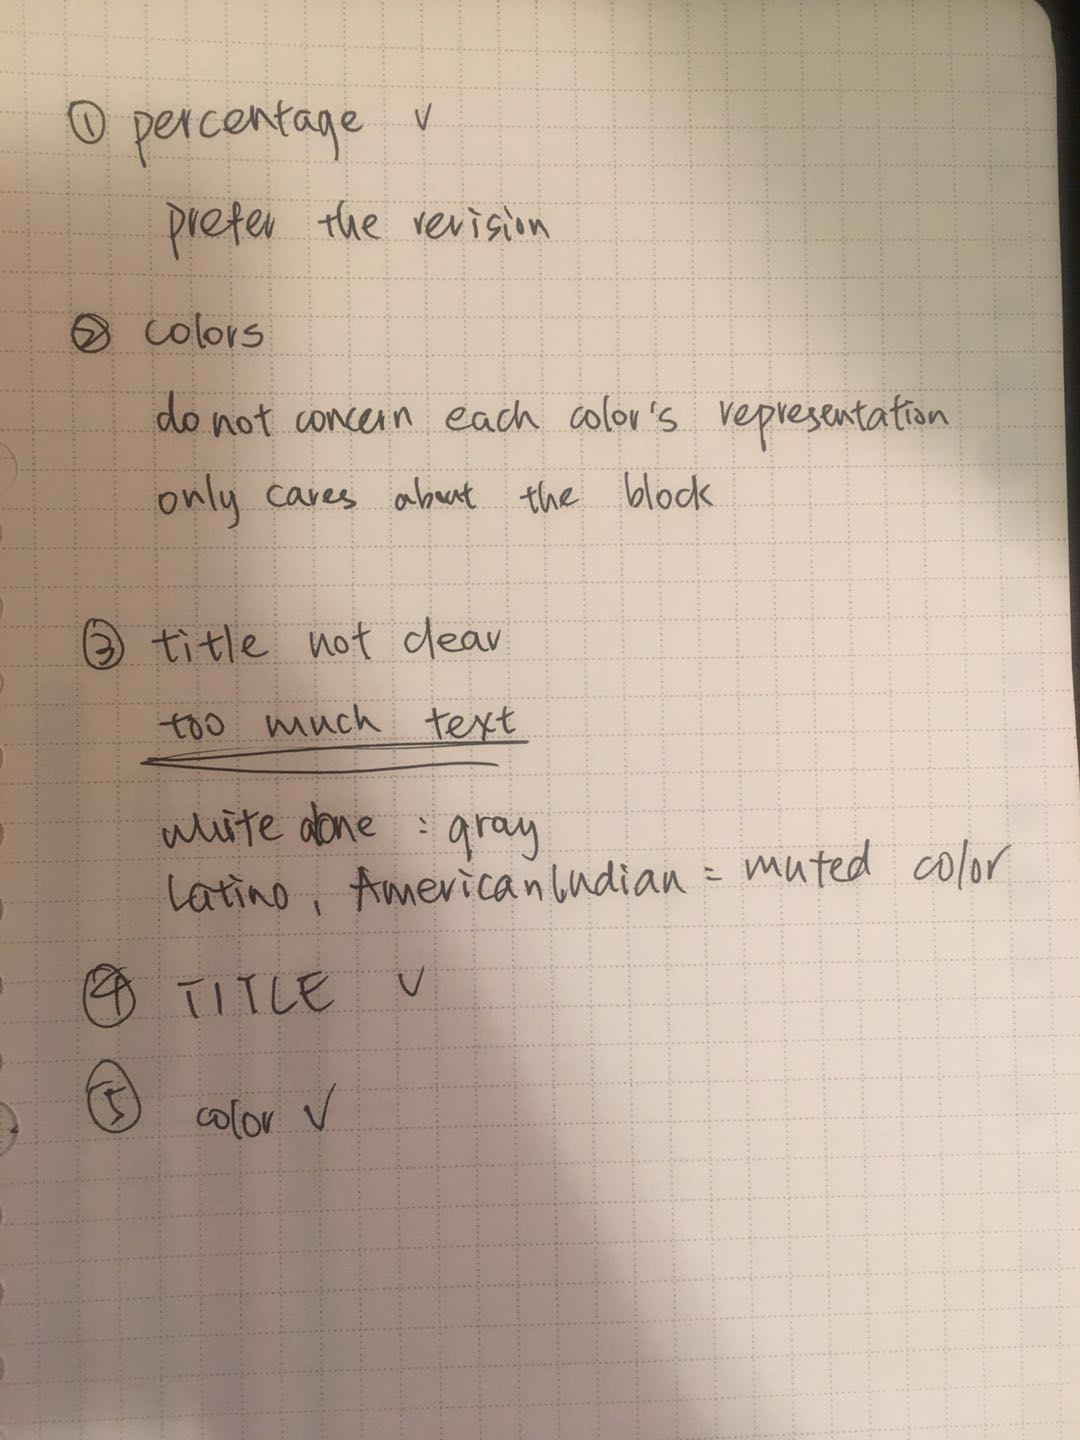 ① percentage ✓
prefer the revision
② colors
do not concern each color's representation
only cares about the block
③ title not clear
too much text
white alone : gray
Latino, American Indian = muted color
④ TITLE ✓
⑤ color ✓